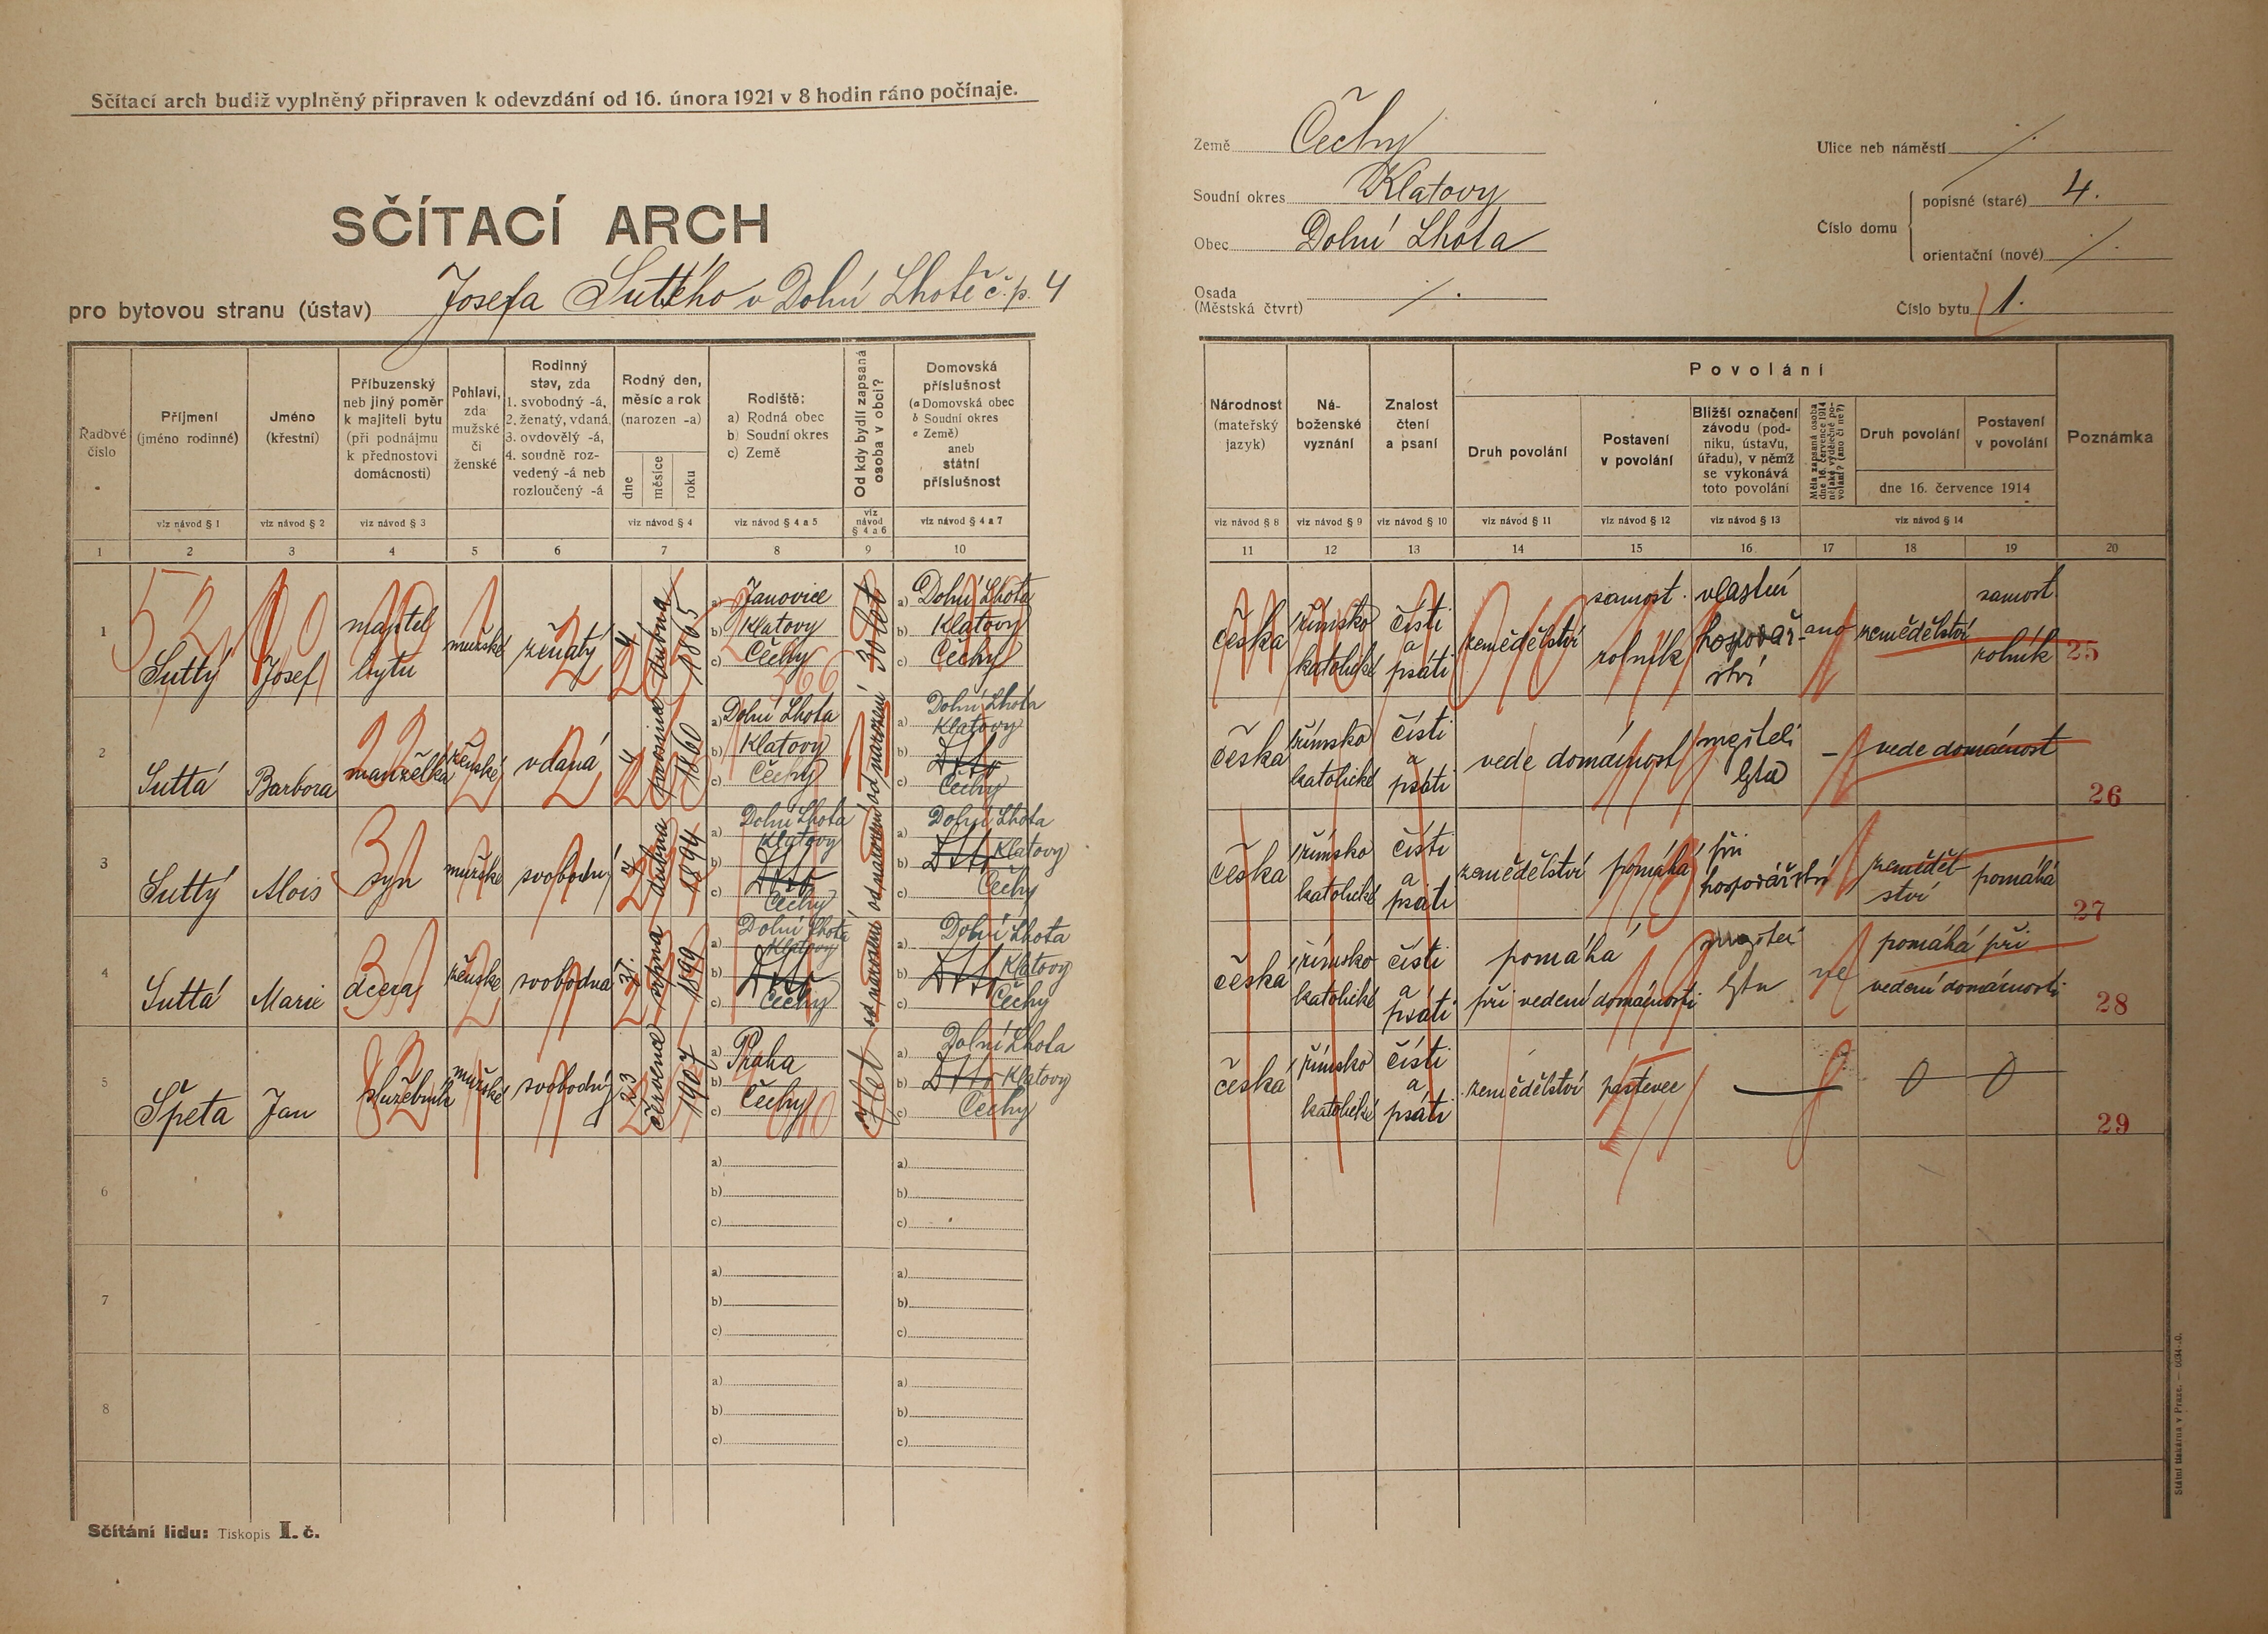 Sčítací arch budiž vyplněný připraven k odevzdání od 16. února 1921 v 8 hodin ráno počínaje.
SČÍTACÍ ARCH
pro bytovou stranu (ústav) Josefa Suttého v Dolní Lhotě č. p. 4
Země Čechy
Soudní okres Klatovy
Obec Dolní Lhota
Osada
(Městská čtvrt)
Ulice neb náměstí
Číslo domu
popisné (staré) 4.
orientační (nové)
Číslo bytu 1.
Řadové číslo
Příjmení (jméno rodinné)
Jméno (křestní)
Příbuzenský neb jiný poměr k majiteli bytu (při podnájmu k přednostovi domácnosti)
Pohlaví, zda mužské či ženské
Rodinný stav, zda 1. svobodný -á, 2. ženatý, vdaná, 3. ovdovělý -á, 4. soudně rozvedený -á neb rozloučený -á
Rodný den, měsíc a rok (narozen -a)
dne měsíce roku
Rodiště: a) Rodná obec b) Soudní okres c) Země
Od kdy bydlí zapsaná osoba v obci?
Domovská příslušnost (a Domovská obec b Soudní okres c Země) aneb státní příslušnost
viz návod § 1 viz návod § 2 viz návod § 3 viz návod § 4 viz návod § 4 a 5 viz návod § 4 a 6 viz návod § 4 a 7
1 2 3 4 5 6 7 8 9 10
Národnost (mateřský jazyk)
Náboženské vyznání
Znalost čtení a psaní
Povolání
Druh povolání
Postavení v povolání
Bližší označení závodu (podniku, ústavu, úřadu), v němž se vykonává toto povolání
Měla zapsaná osoba dne 16. července 1914 nějaké výdělečné povolání? (ano či ne?)
Druh povolání
Postavení v povolání
dne 16. července 1914
Poznámka
viz návod § 8 viz návod § 9 viz návod § 10 viz návod § 11 viz návod § 12 viz návod § 13 viz návod § 14
11 12 13 14 15 16 17 18 19 20
1 Suttý Josef majitel bytu mužské ženatý 4 dubna 1865 a) Janovice b) Klatovy c) Čechy 30 let a) Dolní Lhota b) Klatovy c) Čechy
česká římsko katolické čísti a psáti zemědělství samost. rolník vlastní hospodářství ano zemědělství samost. rolník 25
2 Suttá Barbora manželka ženské vdaná 4 prosince 1860 a) Dolní Lhota b) Klatovy c) Čechy od narození a) Dolní Lhota Klatovy b) Dtto c) Čechy
česká římsko katolické čísti a psáti vede domácnost majiteli bytu – vede domácnost 26
3 Suttý Alois syn mužské svobodný 4 dubna 1894 a) Dolní Lhota Klatovy b) Dtto c) Čechy od narození a) Dolní Lhota b) Dtto Klatovy c) Čechy
česká římsko katolické čísti a psáti zemědělství pomáhá při hospodářství zemědělství pomáhá 27
4 Suttá Marie dcera ženské svobodná 21. srpna 1899 a) Dolní Lhota Klatovy b) Dtto c) Čechy od narození a) Dolní Lhota b) Dtto Klatovy c) Čechy
česká římsko katolické čísti a psáti pomáhá při vedení domácnosti bytu ne pomáhá při vedení domácnosti 28
5 Špeta Jan služebník mužské svobodný 23 července 1907 a) Praha b) c) Čechy let a) Dolní Lhota b) Dtto Klatovy c) Čechy
česká římsko katolické čísti a psáti zemědělství pastevec 0 0 29
6 a) b) c) a) b) c)
7 a) b) c) a) b) c)
8 a) b) c) a) b) c)
Sčítání lidu: Tiskopis I. č.